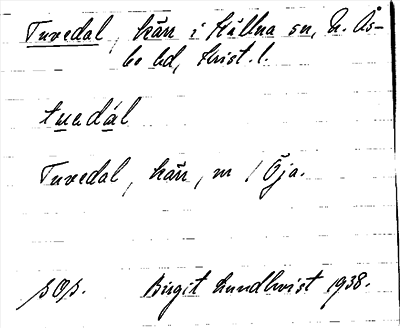 Tuvedal, hän i Källna sn, N. Ås-
bo hd, Krist. l.
tuedál
Tuvedal, hän, m / Öja.
Birgit Lundkvist 1938.